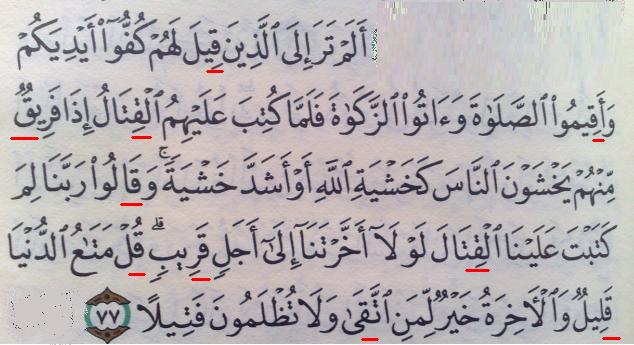 أَلَمْ تَرَ إِلَى ٱلَّذِينَ قِيلَ لَهُمْ كُفُّوٓا۟ أَيْدِيَكُمْ
وَأَقِيمُوا۟ ٱلصَّلَوٰةَ وَءَاتُوا۟ ٱلزَّكَوٰةَ فَلَمَّا كُتِبَ عَلَيْهِمُ ٱلْقِتَالُ إِذَا فَرِيقٌ
مِّنْهُمْ يَخْشَوْنَ ٱلنَّاسَ كَخَشْيَةِ ٱللَّهِ أَوْ أَشَدَّ خَشْيَةً ۚ وَقَالُوا۟ رَبَّنَا لِمَ
كَتَبْتَ عَلَيْنَا ٱلْقِتَالَ لَوْلَآ أَخَّرْتَنَآ إِلَىٰٓ أَجَلٍ قَرِيبٍ ۗ قُلْ مَتَـٰعُ ٱلدُّنْيَا
قَلِيلٌ وَٱلْـَٔاخِرَةُ خَيْرٌ لِّمَنِ ٱتَّقَىٰ وَلَا تُظْلَمُونَ فَتِيلًا ٧٧